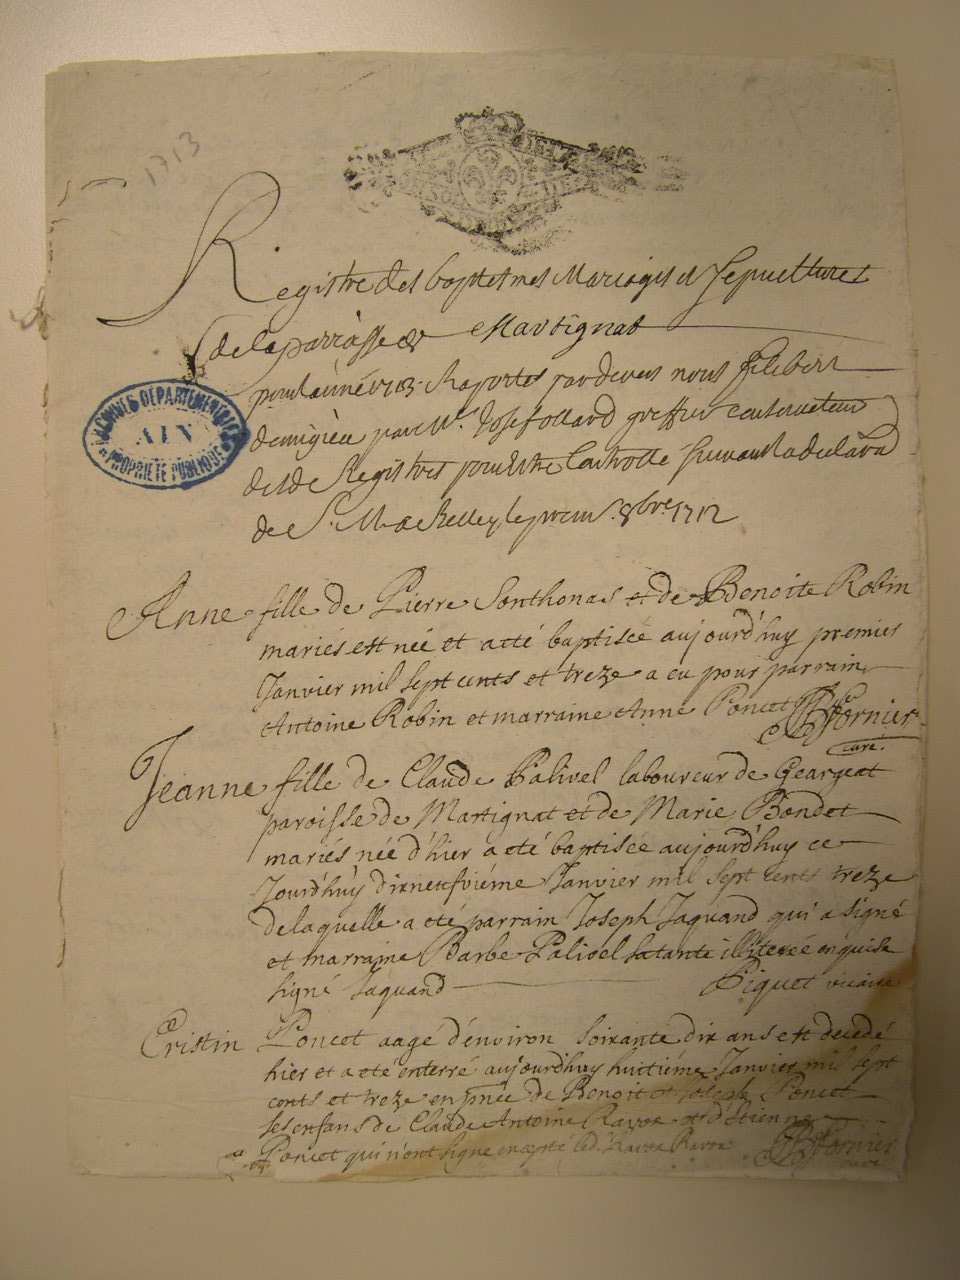 1713
Registre des baptesmes Mariages et Sepultures
de la parroisse de Martignat
pour l'année 1713 Raportés par devers nous Filibert
par Mr. Joseph greffier conservateur
de Registres pour Estre Controllé suivant la declara
de S. M. a Belley, le prem. 8bre. 1712
ARCHIVES DÉPARTEMENTALES
AIN
PROPRIÉTÉ PUBLIQUE
Anne fille de Pierre Sonthonas et de Benoite Robin
mariés est née et a eté baptisée aujourd'huy premier
Janvier mil sept cents et treze a eu pour parrain
Antoine Robin et marraine Anne Poncet Fornier
curé.
Jeanne fille de Claude Palivel laboureur de Geargeat
paroisse de Martignat et de Marie Bondet
mariés née d'hier a eté baptisée aujourd'huy ce
Jourd'huy dixneufviéme Janvier mil sept cents treze
de laquelle a eté parrain Joseph Jaquand qui a signé
et marraine Barbe Palivel sa tante illiterée enquise
signé Jaquand Piquet vicaire
Cristin Poncet aagé d'environ soixante dix ans est decedé
hier et a eté enterré aujourd'huy huitiéme Janvier mil sept
cents et treze en pnce de Benoit et Joseph Poncet
ses enfans de Claude Antoine Ravor et d'Etienne
Poncet qui n'ont signé excepté led. Ravor Ravor Fornier
curé